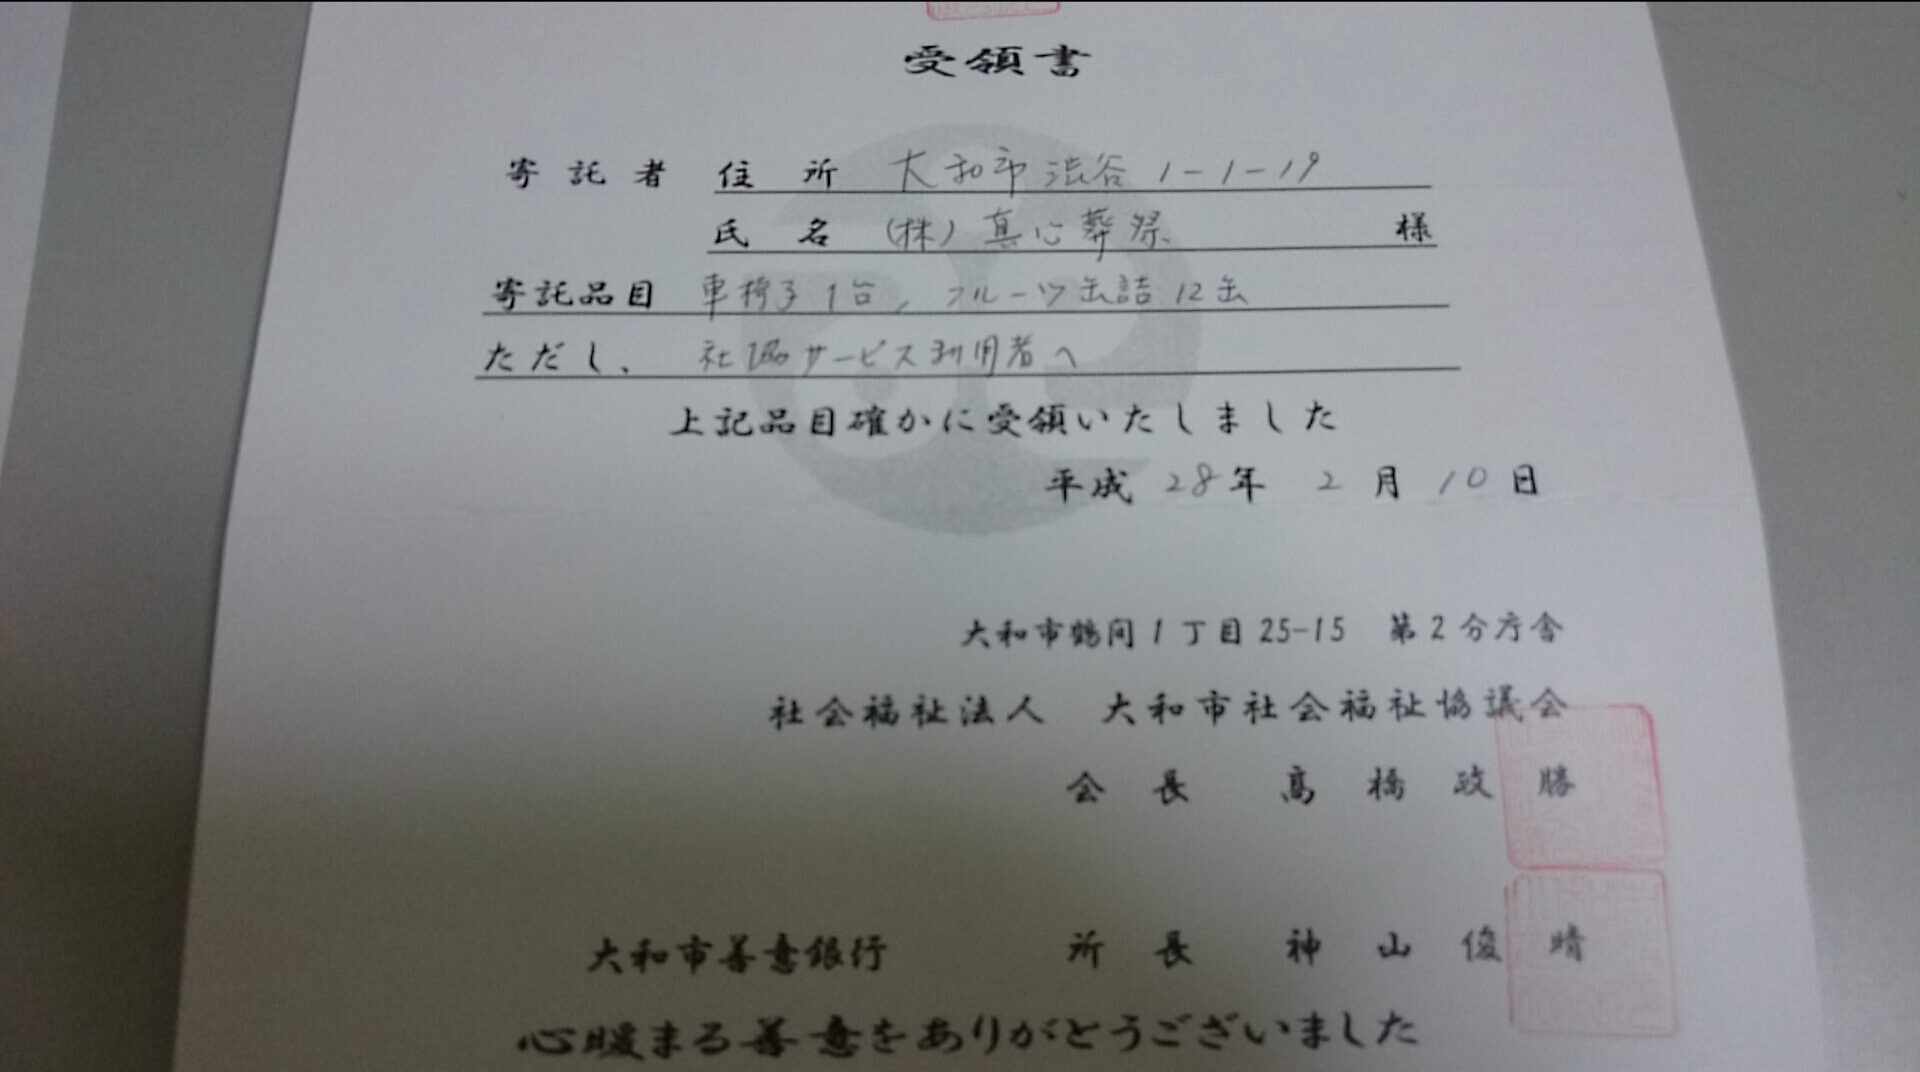 受領書
寄託者 住所 大和市渋谷1-1-19
氏名 (株)真心葬祭 様
寄託品目 車椅子1台、フルーツ缶詰12缶
ただし、 社協サービス利用者へ
上記品目確かに受領いたしました
平成 28年 2月 10日
大和市鶴間1丁目25-15 第2分庁舎
社会福祉法人 大和市社会福祉協議会
会長 髙橋政勝
大和市善意銀行 所長 神山俊晴
心暖まる善意をありがとうございました